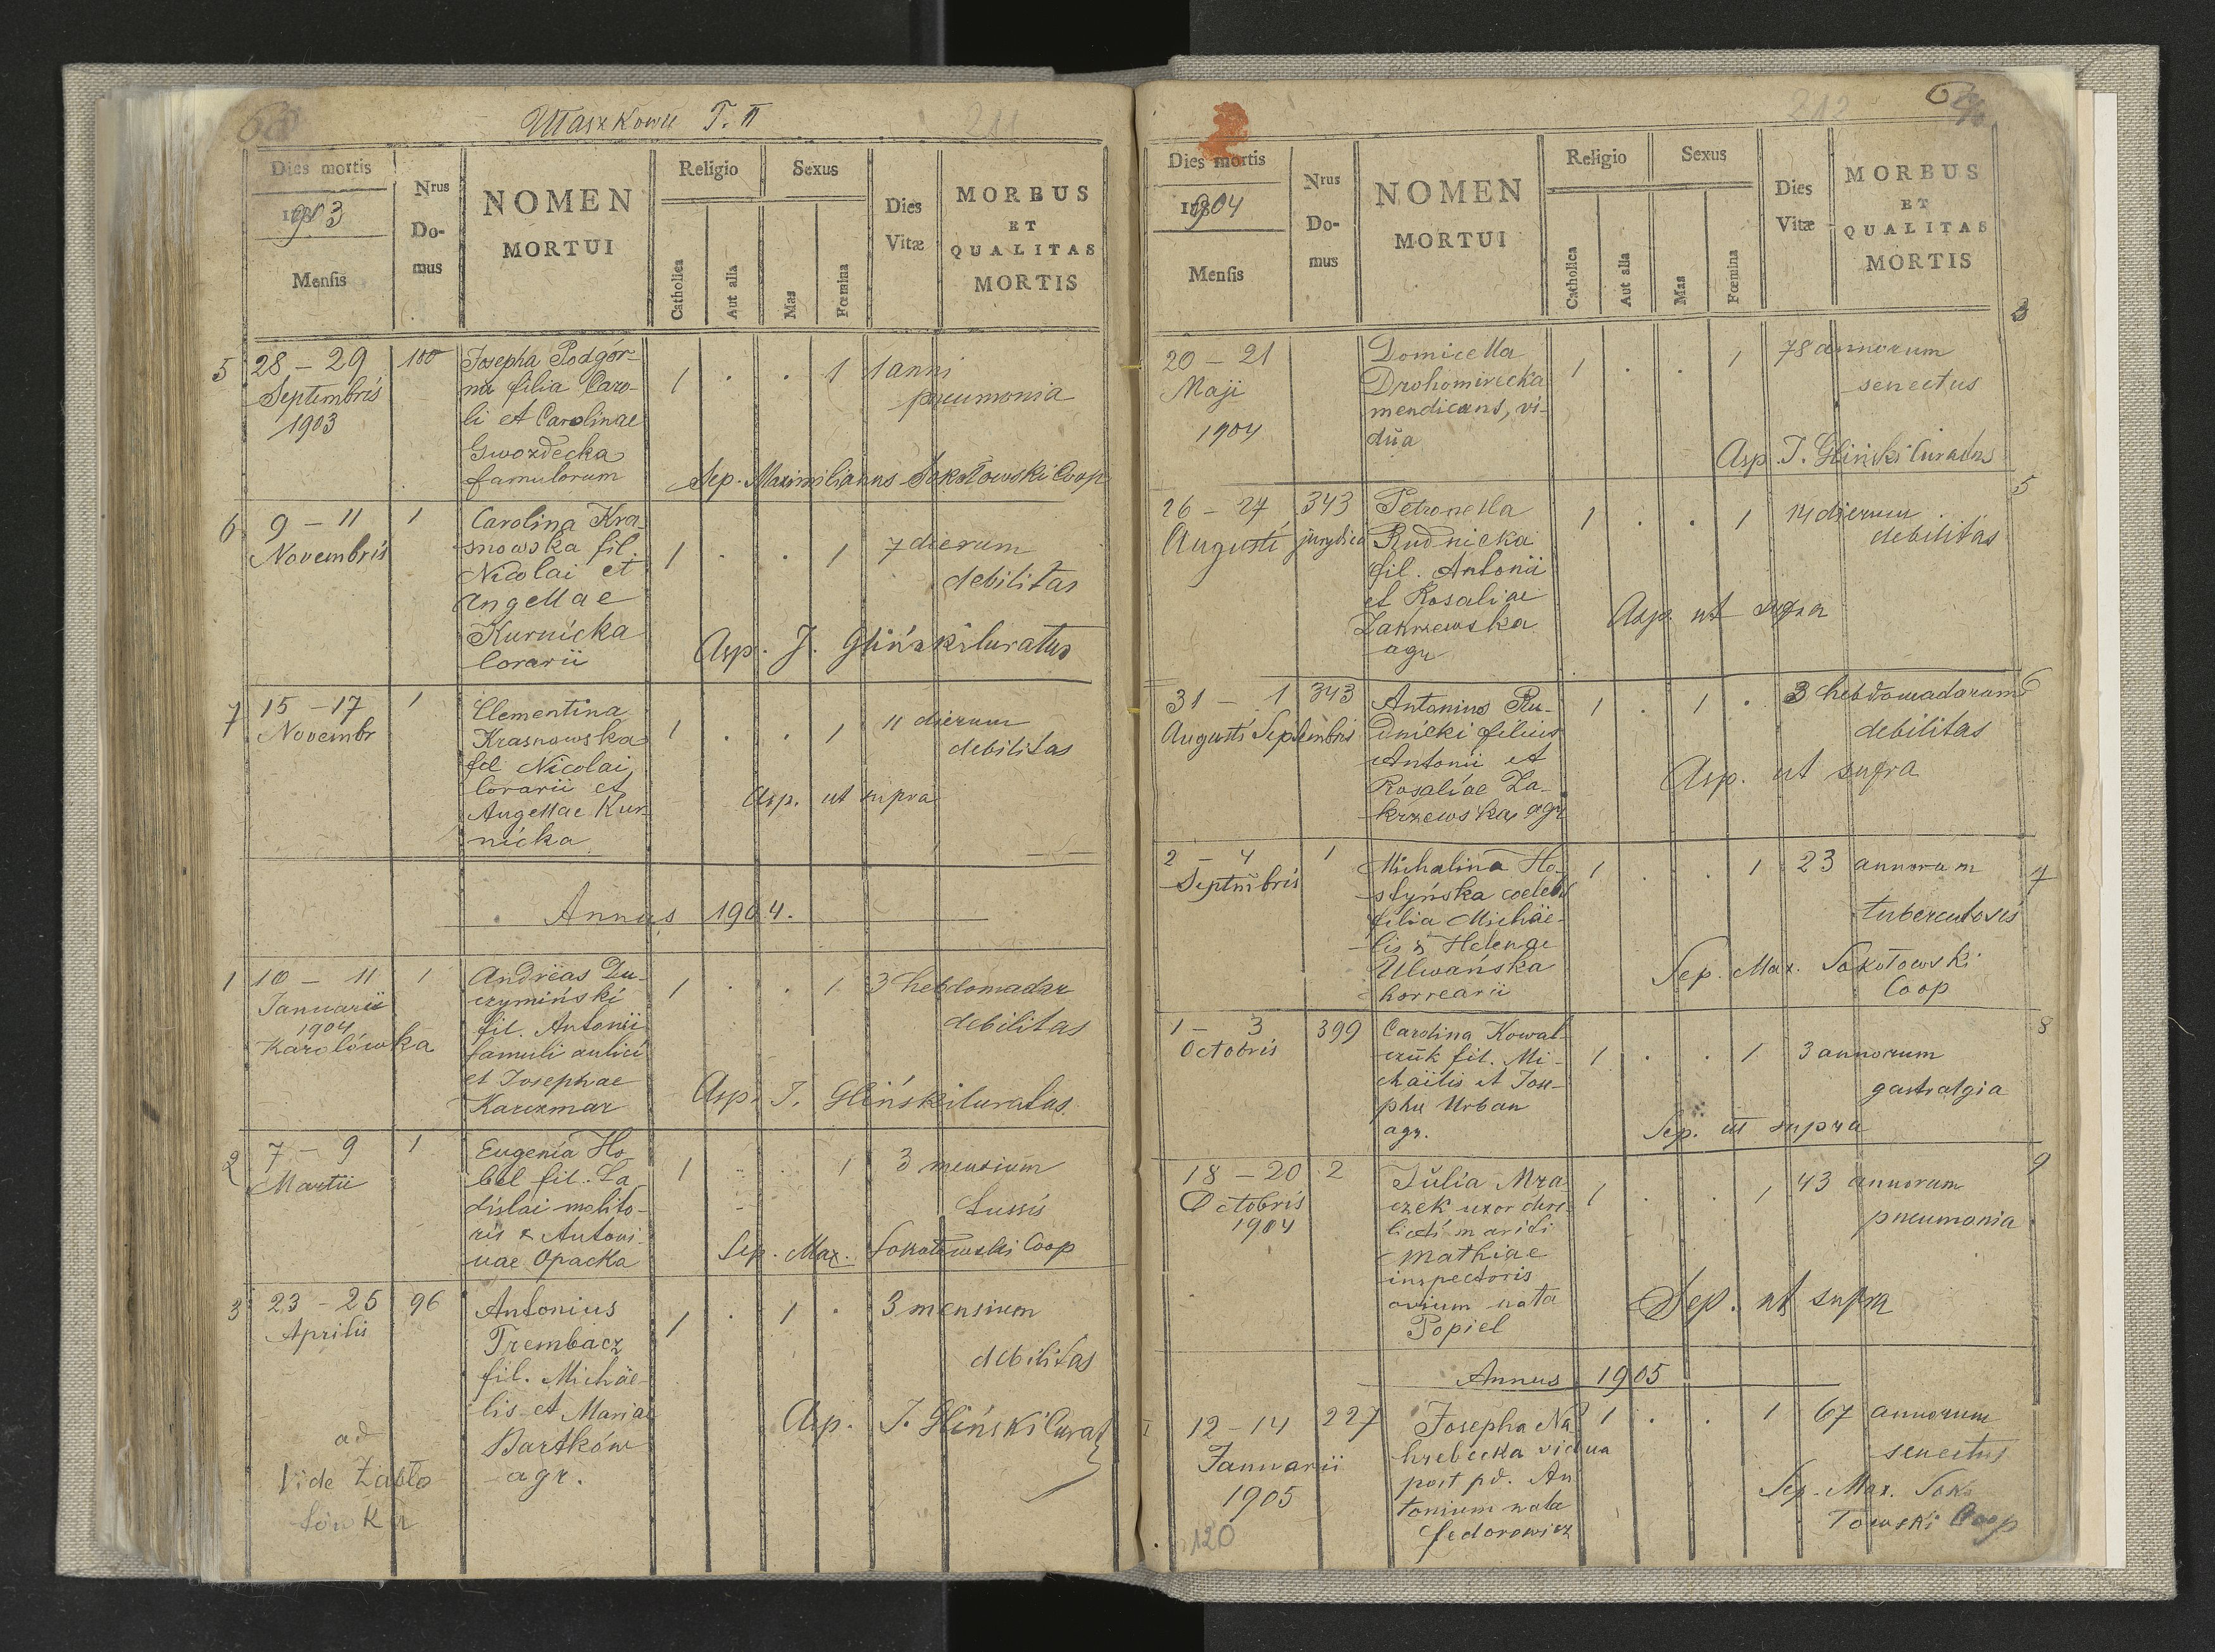 Uraszkowce T. II
Dies mortis
1903
Mensis
Nrus
Do-
mus
NOMEN
MORTUI
Religio
Catholica
Aut alia
Sexus
Mas
Fœmina
Dies
Vitæ
MORBUS
ET
QUALITAS
MORTIS
5 28 - 29 100 Josepha Podgór-
Septembris na filia Caro- 1 . . 1 1 anni
1903 li et Carolinae pneumonia
Gwozdecka
famulorum Sep. Maximilianus Sokołowski Coop
6 9 - 11 1 Carolina Kra-
Novembris snowska fil. 1 . . 1 7 dierum
Nicolai et debilitas
Angellae
Kurnicka Asp. J. Gliński Curatus
lorarii
7 15 - 17 1 Clementina
Novembr Krasnowska 1 . . 1 11 dierum
fil Nicolai debilitas
lorarii et
Angellae Kur- Asp. ut supra
nicka
Annus 1904.
1 10 - 11 1 Andreas Du-
Januarii czymiński 1 . . 1 3 hebdomadar
1904 fil. Antonii debilitas
Karolówka famuli aulici
et Josephae
Karczmar Asp. J. Gliński Curatus
2 7 - 9 1 Eugenia Ho-
Martii bel fil. La- 1 . . 1 3 mensium
dislai molito- tussis
ris & Antoni-
nae Opacka Sep. Max. Sokołowski Coop
3 23 - 25 96 Antonius 1 . 1 . 3 mensium
Aprilis Trembacz
fil. Michäe- debilitas
lis et Mariae
Bartków Asp. J. Gliński Curat
agr.
ad
Vide Zabło
tówka
212
Dies mortis
1904
Mensis
Nrus
Do-
mus
NOMEN
MORTUI
Religio
Catholica
Aut alia
Sexus
Mas
Fœmina
Dies
Vitæ
MORBUS
ET
QUALITAS
MORTIS
20 - 21 Domicella 1 . . 1 78 annorum
Maji Drohomirecka senectus
1904 mendicans, vi-
dŭa Asp J. Gliński Curatus
26 - 27 343 Petronella 1 . . 1 14 dierum 5
Augusti jurydica Rudnicka debilitas
fil. Antonii
et Rosaliae
Zakrzewska Asp. ut supra
agr
31 - 1 343 Antonius Ru- 1 . 1 . 3 hebdomadarum 6
Augusti Septembris dnicki filius debilitas
Antonii et
Rosaliae Za- Asp. ut supra
krzewska, agr
2 - 4 1 Michalina Ho- 1 . . 1 23 annorum 7
Septmbris styńska coelebs
filia Michäe- tuberculosis
lis & Helenae
Ulwańska Sep. Max. Sokołowski
horrearii Coop
1 - 3 399 Carolina Kowal- 8
Octobris czŭk fil. Mi- 1 . . 1 3 annorum
chäelis et Jose- gastralgia
phu Urban
agr. Sep. ut supra
18 - 20 2 Jŭlia Mra- 1 . . 1 43 annorum 9
Octobris czek uxor dere-
1904 licti mariti pneumonia
Mathiae
inspectoris
ovium nata Sep. ut supra
Popiel
Annus 1905
1 12 - 14 227 Josepha Na- 1 . . 1 67 annorum
Januarii hrebecka vidua senectus
1905 post pd. An
tonium nata Sep. Max. Soko
Fedorowicz łowski Coop
120